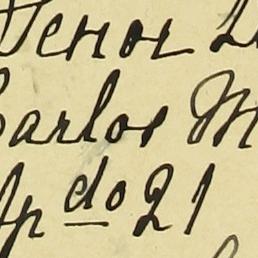 Señor D
Carlos M
Apdo 21